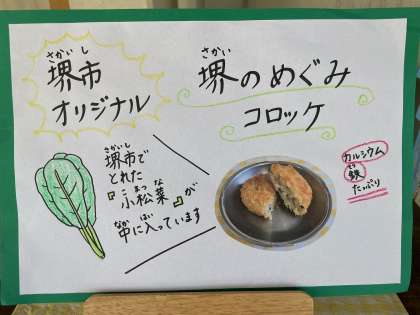 さかい し
堺市
オリジナル
さかい
堺のめぐみ
コロッケ
さかいし
堺市で
とれた
こ まつ な
『小松菜』が
なか はい
中に入っています
カルシウム
てつ
鉄
たっぷり